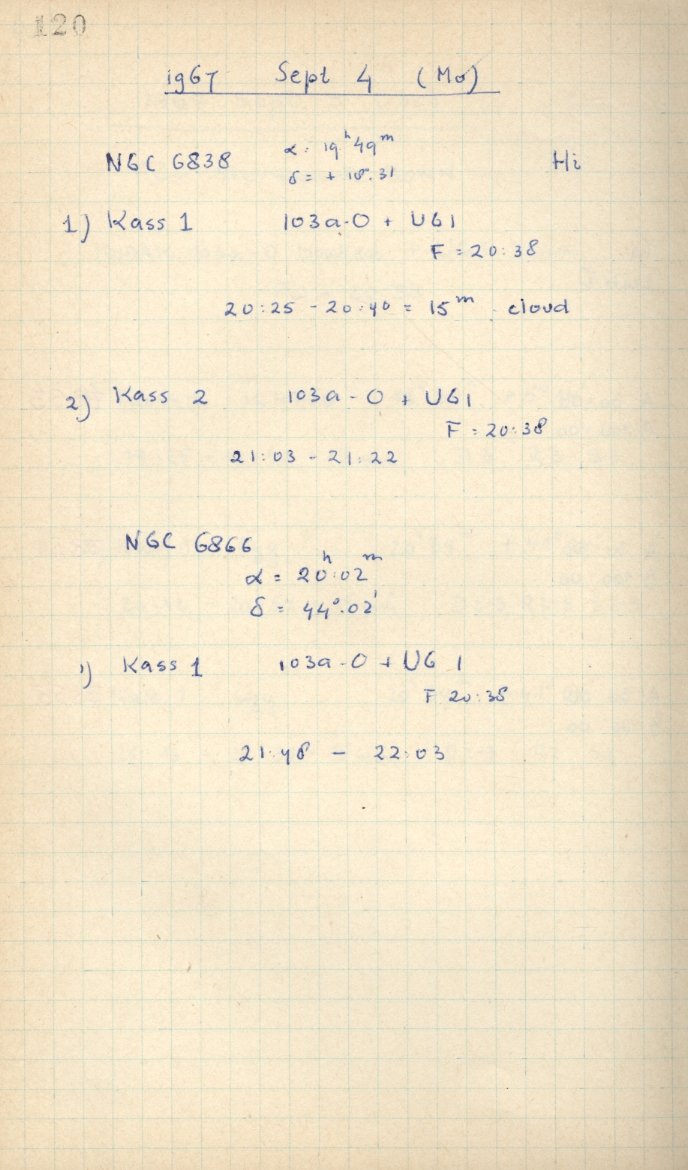 120
1967 Sept 4 (Mo)
NGC 6838 α: 19ʰ49ᵐ Hi
δ = + 18°.31
1) Kass 1 103a-O + UG1
F = 20:38
20:25 - 20:40 = 15ᵐ. cloud
2) Kass 2 103a-O + UG1
F = 20:38
21:03 - 21:22
NGC 6866
α = 20ʰ:02ᵐ
δ = 44°.02'
1) Kass 1 103a-O + UG 1
F 20:38
21:48 - 22:03